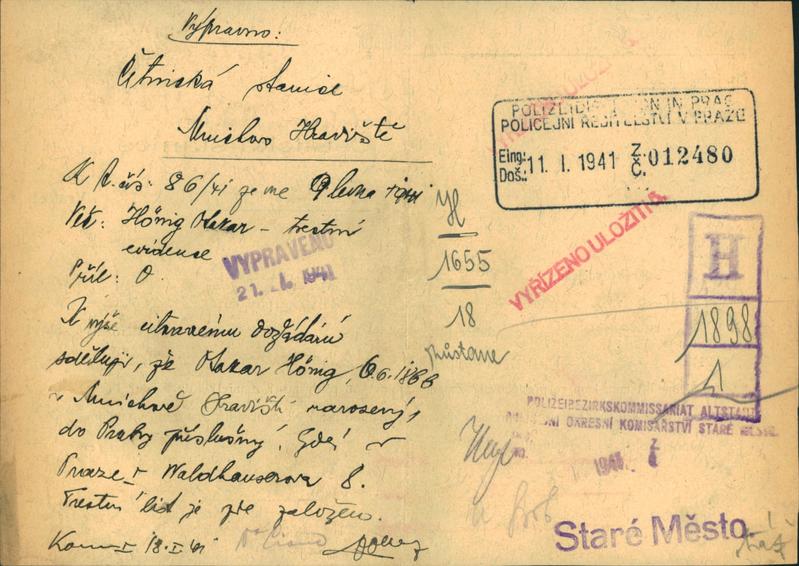 Vypravno:
Četnická stanice
Mnichovo Hradiště
K t. čís: 86/41 ze dne 9 ledna 1941
Věc: Hönig Otakar – trestní
evidence
Příl: 0.
K výše citovanému dožádání
sděluji, že Otakar Hönig, 6.6.1866
v Mnichově Hradišti narozený,
do Prahy příslušný, zde v
Praze I Waldhauserova 8.
Trestní list je zde založen.
18.I.41
VYPRAVENO
21. I. 1941
1655
18
zůstane
POLIZEIDIREKTION IN PRAG
POLICEJNÍ ŘEDITELSTVÍ V PRAZE
Eing.:
Doš.:
11. I. 1941 Z./Č. 012480
VYŘÍZENO ULOŽITI A
H
1898
1
POLIZEIBEZIRKSKOMMISSARIAT ALTSTADT
OKRESNÍ KOMISAŘSTVÍ STARÉ MĚSTO
1941
Staré Město.